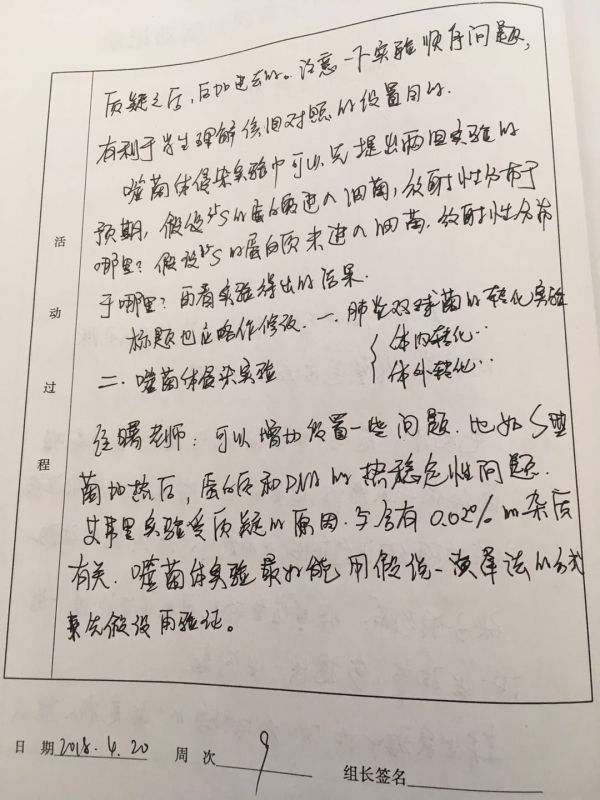 质疑之后,后加进去的。注意一下实验顺序问题,
有利于学生理解使用对照的设置目的.
噬菌体侵染实验中可以先提出两组实验的
预期,假设³⁵S的蛋白质进入细菌,放射性分布于
哪里?假设³⁵S的蛋白质未进入细菌.放射性分布
于哪里?再看实验得出的结果.
标题也应略作修改.一.肺炎双球菌的转化实验
体内转化…
二.噬菌体侵染实验
体外转化…
老师:可以增加设置一些问题.比如S型
菌加热后,蛋白质和DNA的热稳定性问题.
艾弗里实验受质疑的原因.与含有0.02%的杂质
有关.噬菌体实验最好能用假说-演绎法的方式
来先假设再验证。
活动过程
日期2018.4.20 周次9 组长签名